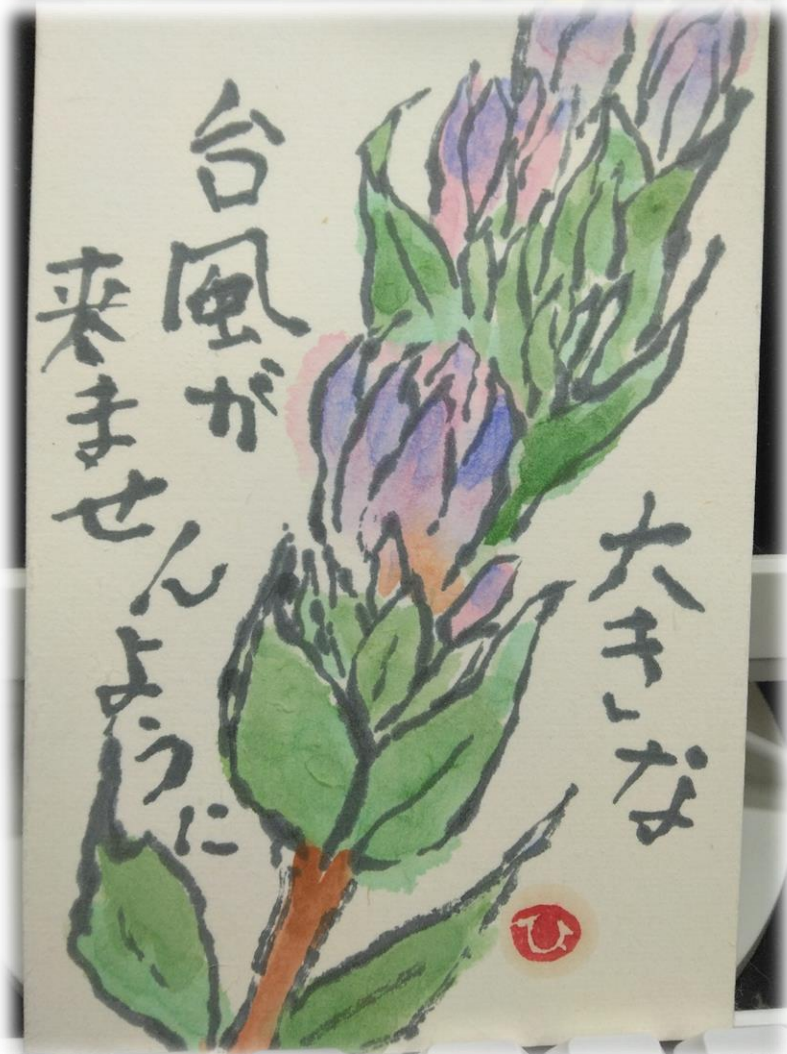 大きな
台風が
来ませんように
ひ